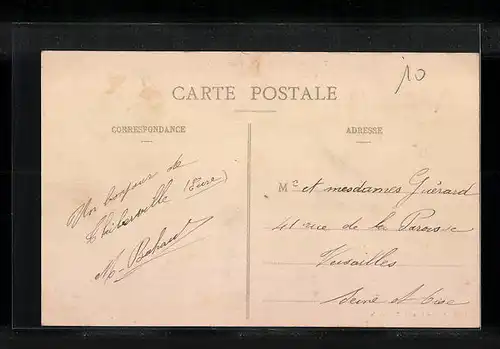 10
CARTE POSTALE
CORRESPONDANCE
ADRESSE
Un bonjour de
Thiberville (Eure)
M. et mesdames Guérard
41 rue de la Paroisse
Versailles
Seine et Oise